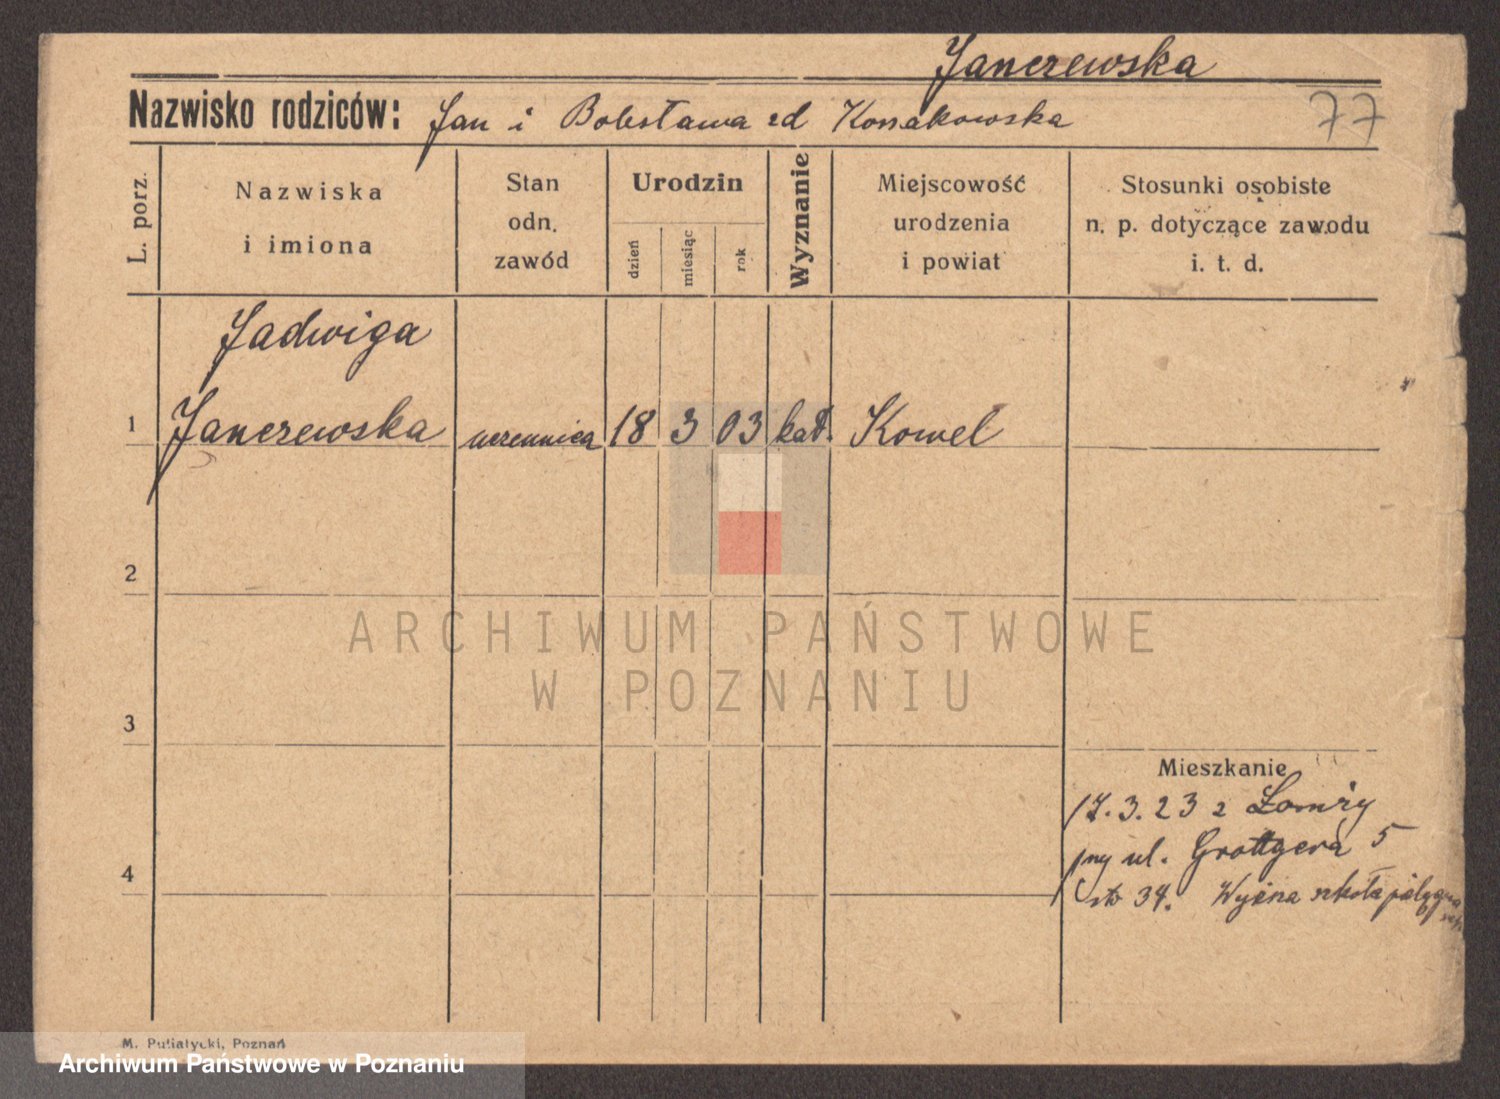 Janczewska
Nazwisko rodziców: Jan i Bolesława zd Konakowska
77
L. porz.
Nazwiska
i imiona
Stan
odn.
zawód
Urodzin
dzień
miesiąc
rok
Wyznanie
Miejscowość
urodzenia
i powiat
Stosunki osobiste
n. p. dotyczące zawodu
i. t. d.
Jadwiga
1 Janczewska uczennica 18 3 03 kat. Kowel
2
ARCHIWUM PAŃSTWOWE
W POZNANIU
3
Mieszkanie
17.3.23 z Łomży
ul. Grottgera 5
4
34. Wyższa szkoła
M. Putiatycki, Poznań
Archiwum Państwowe w Poznaniu